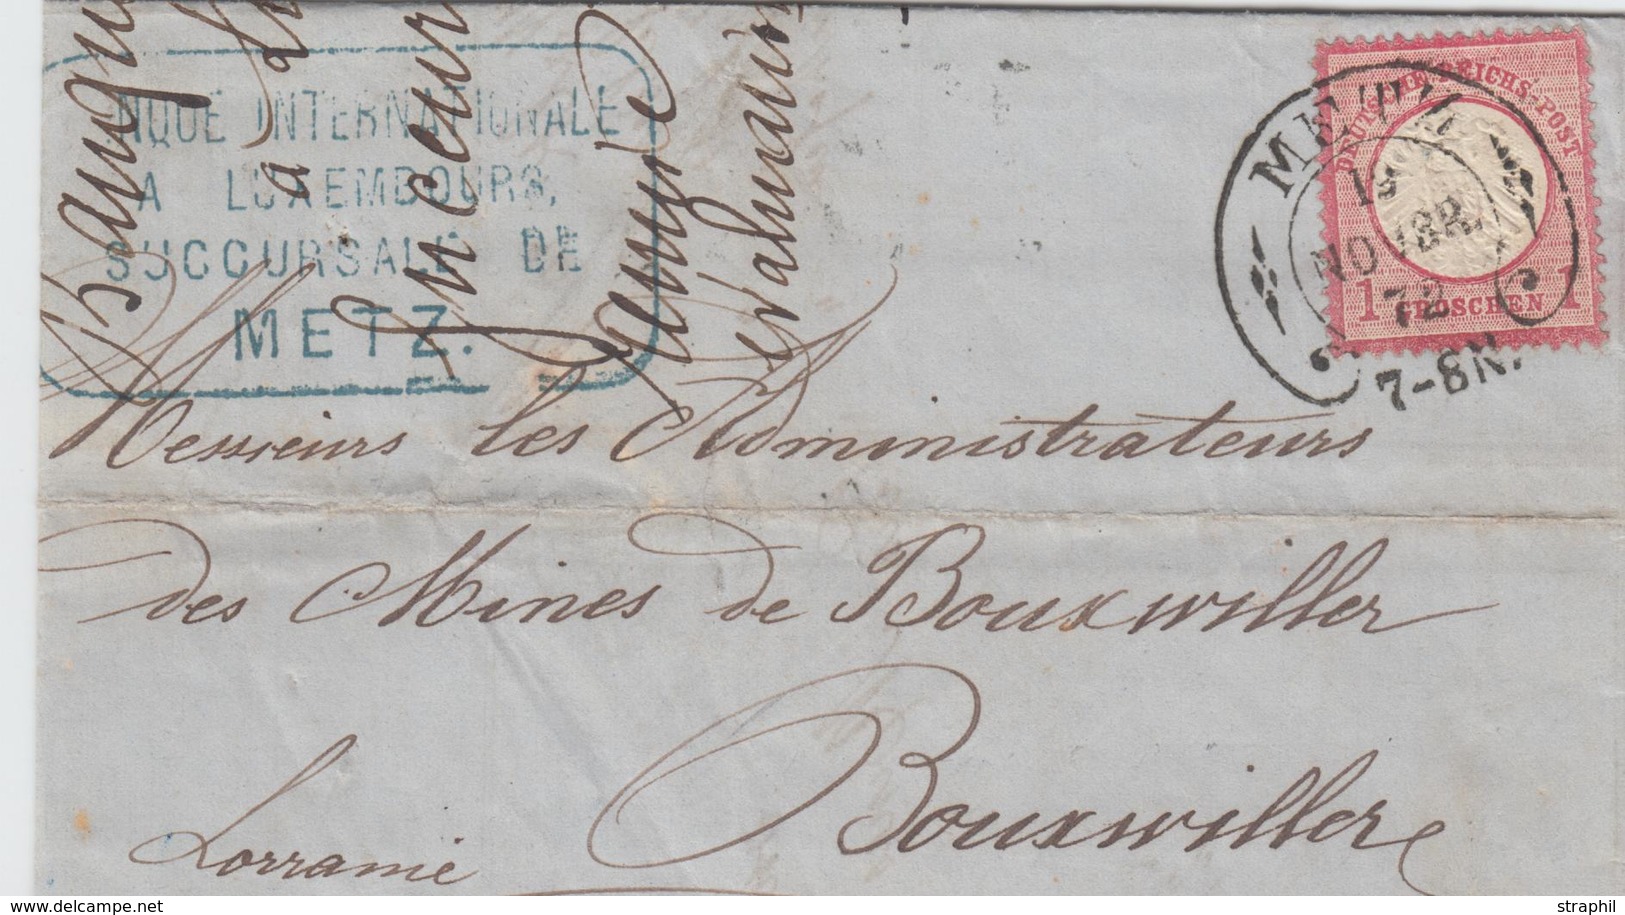 NQUE INTERNATIONALE
A LUXEMBOURG,
SUCCURSALE DE
METZ.
DEUTSCHE REICHS-POST
1 GROSCHEN 1
METZ
NOVBR.
72
7-8N.
Messieurs les Administrateurs
des Mines de Bouxwiller
Bouxwiller
Lorraine
delcampe.net
straphil